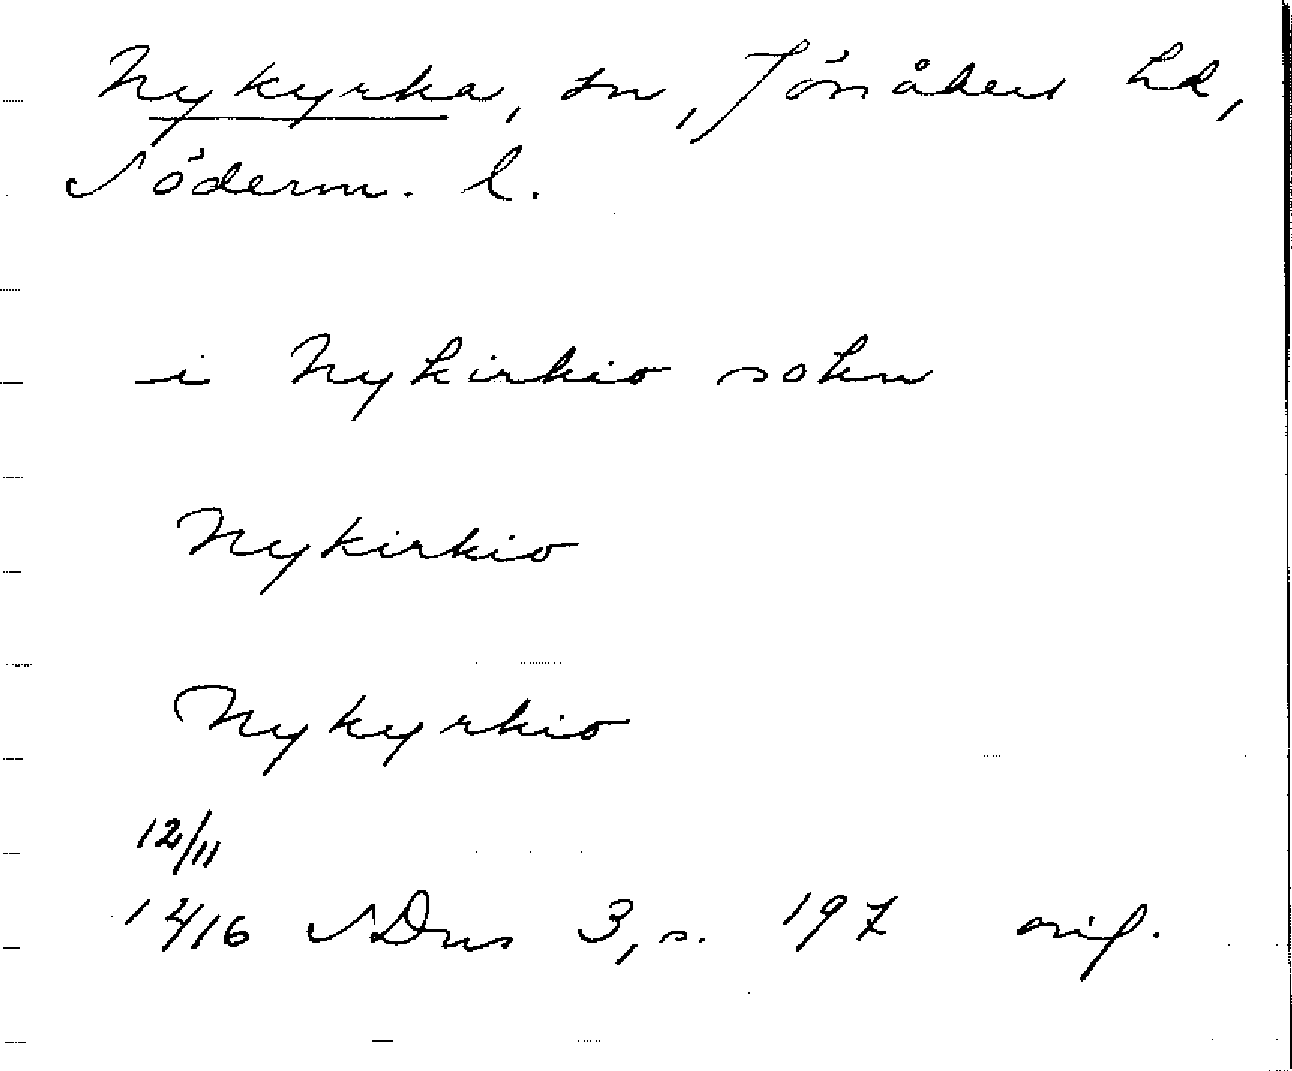 Nykyrka, sn, Jönåkers hd,
Söderm. l.
i Nykirkio sokn
Nykirkio
Nykyrkio
12/11
1416 SDns 3, s. 197 orig.